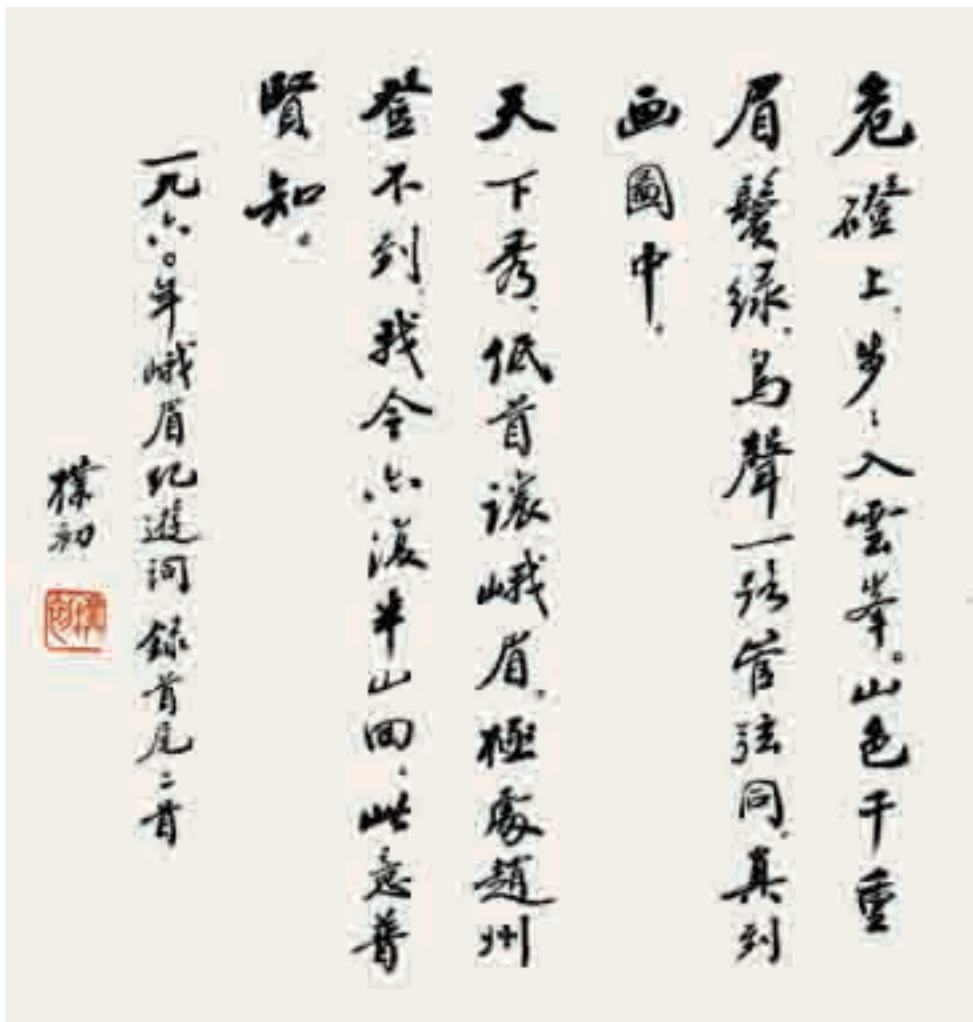 危磴上、步々入雲峯。山色千重
眉鬟绿、鳥聲一路管弦同、真到
画圖中。
天下秀、低首讓峨眉、極處趙州
登不到、我今亦復半山回、此意普
賢知。
一九六〇年峨眉纪遊词 録首尾二首
樸初
樸初